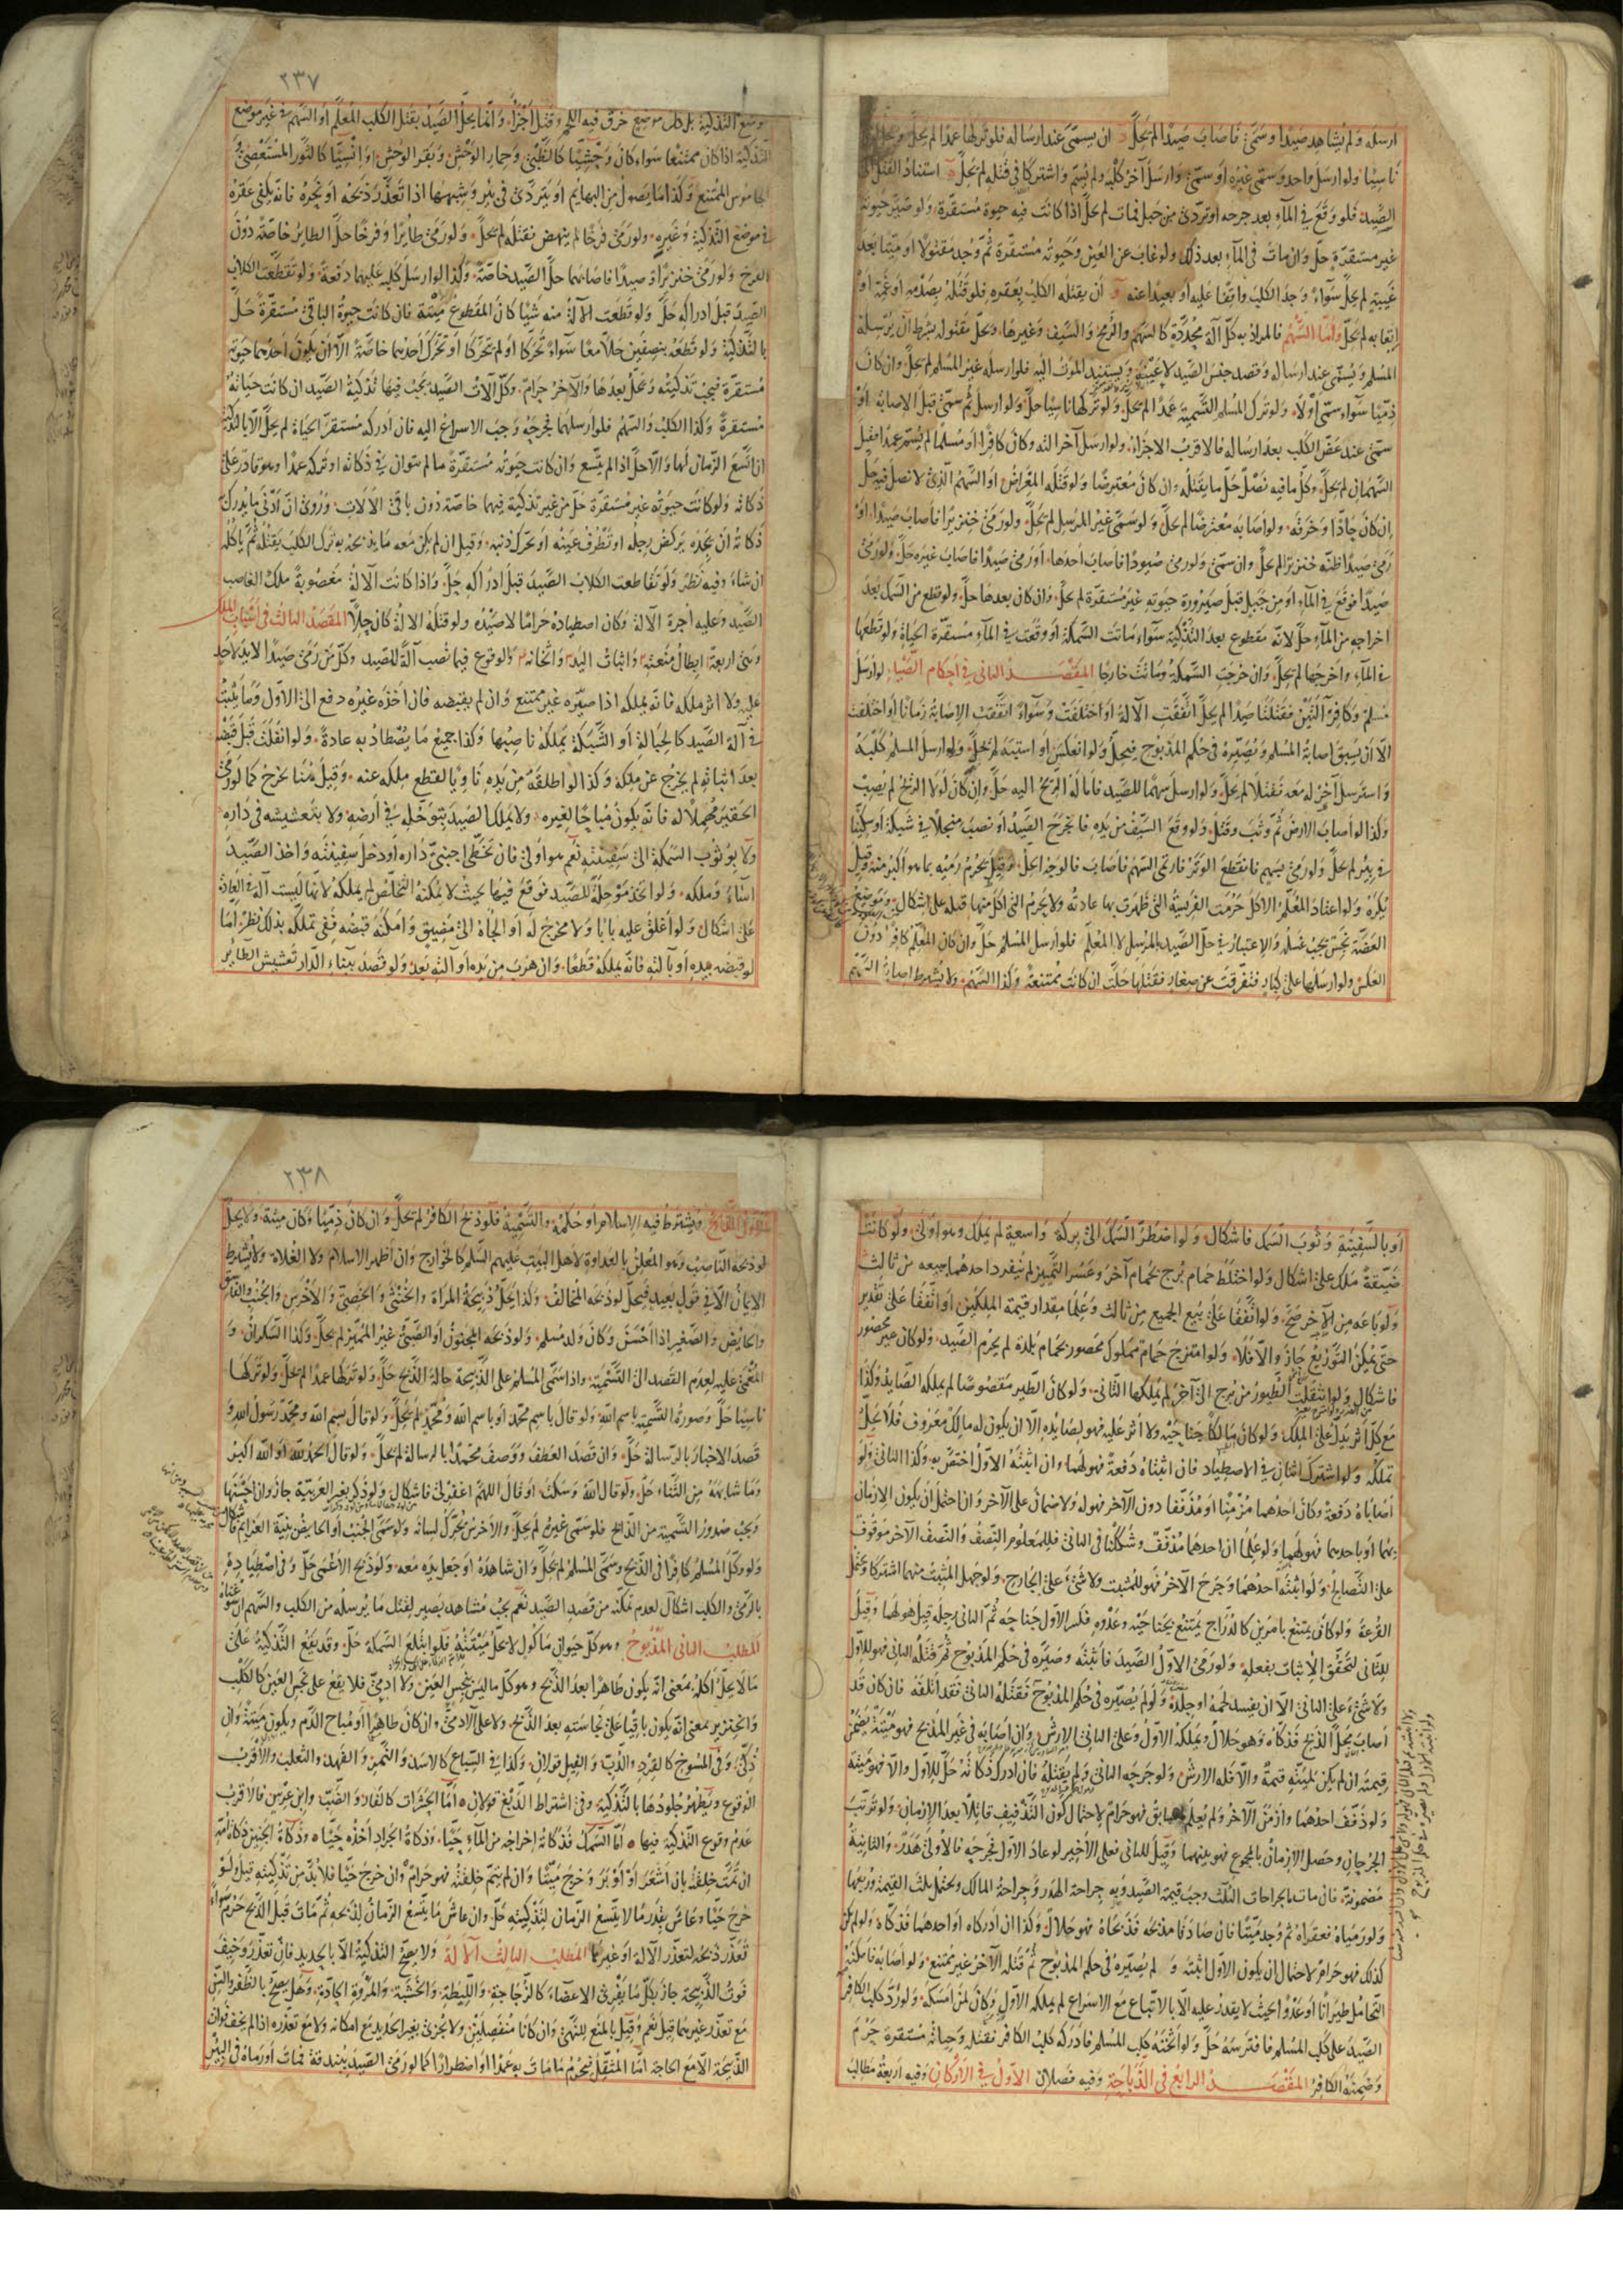 ارسله ولم يشاهد صيدا وسمى فاصاب صيدا لم يحل ان يسمى عند ارساله فلو تركها عمدا لم يحل
ناسيا ولو ارسل واحد وسمى غيره او سمى وارسل آخر كلبه ولم يسم واشتركا في قتله لم يحل استناد القتل
الصيد فلو وقع في الماء بعد جرحه او تردى من جبل فمات لم يحل اذا كانت فيه حيوة مستقرة ولو صير حيوته
غير مستقرة حل وان مات في الماء بعد ذلك ولو غاب عن العين وحيوته مستقرة ثم وجد مقتولا او ميتا بعد
غيبته لم يحل سواء وجد الكلب واقفا عليه او بعيدا عنه ان يقتله الكلب بعقره فلو قتله بصدمه او غمه او
اتعابه لم يحل واما السهم فالمراد به كل آلة محددة كالسهم والرمح والسيف وغيرها ويحل مقتوله بشرط ان يرسله
المسلم ويسمى عند ارساله وقصد جنس الصيد لا عينه ويستند الموت اليه فلو ارسله غير المسلم لم يحل وان كان
ذميا سواء سمى اولا ولو ترك المسلم التسمية عمدا لم يحل ولو تركها ناسيا حل ولو ارسل ثم سمى قبل الاصابة او
سمى عند عض الكلب بعد ارساله فالاقرب الاجزاء ولو ارسل آخر آلته وكان كافرا او مسلما لم يسم عمدا فقتل
السهمان لم يحل وكل ما فيه نصل حل ما يقتله وان كان معترضا ولو قتله المعراض او السهم الذي لا نصل فيه حل
ان كان حادا وخرقه ولو اصابه معترضا لم يحل ولو سمى غير المرسل لم يحل ولو رمى خنزيرا فاصاب صيدا او
رمى صيدا ظنه خنزيرا لم يحل وان سمى ولو رمى صيودا فاصاب احدها او رمى صيدا فاصاب غيره حل ولو رمى
صيدا فوقع في الماء او من جبل قبل صيرورة حيوته غير مستقرة لم يحل وان كان بعدها حل ولو قطع من السمك بعد
اخراجه من الماء حل لانه مقطوع بعد التذكية سواء ماتت السمكة او وقعت في الماء مستقرة الحياة ولو قطعها
في الماء واخرجها لم يحل وان خرجت السمكة وماتت خارجا المقصد الثاني في احكام الصيد لو ارسل
مسلم وكافر آلتين فقتلتا صيدا لم يحل اتفقت الآلة او اختلفت وسواء اتفقت الاصابة زمانا او اختلفت
الا ان يسبق اصابة المسلم ويصيره في حكم المذبوح فيحل ولو انعكس او اشتبه لم يحل ولو ارسل المسلم كلبه
واسترسل آخر له معه فقتلا لم يحل ولو ارسل سهما للصيد فامالته الريح اليه حل وان كان لولا الريح لم يصب
وكذا لو اصاب الارض ثم وثب وقتل ولو وقع السيف من يده فانجرح الصيد او نصب منجلا في شبكة او سكينا
في بئر لم يحل ولو رمى بسهم فانقطع الوتر فارتمى السهم فاصاب فالوجه الحل وقيل يحرم رميه بما هو اكبر منه وقيل
يكره ولو اعتاد المعلم الاكل حرمت الفريسة التي ظهرت بها عادته ولا يحرم التي اكل منها قبله على اشكال وموضع
العضة نجس يجب غسله والاعتبار في حل الصيد بالمرسل لا المعلم فلو ارسل المسلم حل وان كان المعلم كافرا دون
العكس ولو ارسلها على كبار فتفرقت عن صغار فقتلها حلت ان كانت ممتنعة وكذا السهم ولا يشترط اصابة السهم
٢٣٧
موضع التذكية بل كل موضع خرق فيه اللحم وقتل اجزأ وانما يحل الصيد بقتل الكلب المعلم او السهم في غير موضع
التذكية اذا كان ممتنعا سواء كان وحشيا كالظبي وحمار الوحش وبقر الوحش او انسيا كالثور المستعصي
الجاموس الممتنع وكذا ما يصول من البهايم او يتردى في بئر وشبهها اذا تعذر ذبحه او نحره فانه يكفي عقره
في موضع التذكية وغيره ولو رمى فرخا لم ينهض فقتله لم يحل ولو رمى طائرا وفرخا حل الطائر خاصة دون
الفرخ ولو رمى خنزيرا وصيدا فاصابهما حل الصيد خاصة وكذا لو ارسل كلبه عليهما دفعة ولو تقطعت الكلاب
الصيد قبل ادراكه حل ولو قطعت الآلة منه شيئا كان المقطوع ميتة فان كانت حيوة الباقي مستقرة حل
بالتذكية ولو قطعه بنصفين حلا معا سواء تحركا او لم يتحركا او تحرك احدهما خاصة الا ان يكون احدهما حيوته
مستقرة فيجب تذكيته ويحل بعدها والآخر حرام وكل آلات الصيد يجب فيها تذكية الصيد ان كانت حياته
مستقرة وكذا الكلب والسهم فلو ارسلهما فجرحه وجب الاسراع اليه فان ادركه مستقر الحياة لم يحل الا بالتذكية
ان اتسع الزمان لها والا حل اذا لم يتسع وان كانت حيوته مستقرة ما لم يتوان في ذكاته او تركه عمدا وهو قادر على
ذكاته ولو كانت حيوته غير مستقرة حل من غير تذكية فيهما خاصة دون باقي الآلات وروي ان ادنى ما يدرك
ذكاته ان يجده يركض رجله او تطرف عينه او تحرك ذنبه وقيل ان لم يكن معه ما يذبحه به ترك الكلب يقتله ثم ياكله
ان شاء وفيه نظر ولو تقاطعت الكلاب الصيد قبل ادراكه حل واذا كانت الآلة مغصوبة ملك الغاصب
الصيد وعليه اجرة الآلة وكان اصطياده حراما لا صيده ولو قتله الآلة كان حلالا المقصد الثالث في اسباب الملك
وهي اربعة ابطال منعته واثبات اليد واثخانه والوقوع فيما نصب آلة للصيد وكل من رمى صيدا لا يد لاحد
عليه ولا اثر ملكه فانه يملكه اذا صيره غير ممتنع وان لم يقبضه فان اخذه غيره دفع الى الاول وما يثبت
في آلة الصيد كالحبالة او الشبكة يملكه ناصبها وكذا جميع ما يصطاد به عادة ولو انفلت قبل قبضه
بعد اثباته لم يخرج عن ملكه وكذا لو اطلقه من يده ناويا لقطع ملكه عنه وقيل هنا يخرج كما لو رمى
الحقير مهملا له فانه يكون مباحا لغيره ولا يملك الصيد بتوحله في ارضه ولا بتعشيشه في داره
ولا بوثوب السمكة الى سفينته نعم هو اولى فان تخطى اجنبي داره او دخل سفينته واخذ الصيد
اساء وملكه ولو اتخذ موحلة للصيد فوقع فيها بحيث لا يمكنه التخلص لم يملكه لانها ليست آلة في العادة
على اشكال ولو اغلق عليه بابا ولا مخرج له او الجأه الى مضيق وامكنه قبضه ففي تملكه بذلك نظر اما
لو قبضه بيده او بآلته فانه يملكه قطعا وان هرب من يده او آلته بعد ولو قصد ببناء الدار تعشيش الطائر
او بالسفينة وثوب السمك فاشكال ولو اضطر السمك الى بركة واسعة لم يملك وهو اولى ولو كانت
ضيقة ملك على اشكال ولو اختلط حمام برج بحمام آخر وعسر التميز لم ينفرد احدهما ببيعه من ثالث
ولو باعه من الآخر صح ولو اتفقا على بيع الجميع من ثالث وعلما مقدار قيمة الملكين او اتفقا على تقدير
حتى يمكن التوزيع جاز والا فلا ولو امتزج حمام مملوك محصور بحمام بلدة لم يحرم الصيد ولو كان غير محصور
فاشكال ولو انتقلت الطيور من برج الى آخر لم يملكها الثاني ولو كان الطير مقصوصا لم يملكه الصايد وكذا
مع كل اثر يدل على الملك ولو كان مالكا جناحيه ولا اثر عليه فهو لصايده الا ان يكون له مالك معروف فلا يحل
تملكه ولو اشترك اثنان في الاصطياد فان اثبتاه دفعة فهو لهما وان اثبته الاول اختص به وكذا الثاني ولو
اصاباه دفعة وكان احدهما مزمنا او مذففا دون الآخر فهو له ولا ضمان على الآخر وان احتمل ان يكون الازمان
بهما او باحدهما فهو لهما ولو علم ان احدهما مذفف وشككنا في الثاني فللمعلوم النصف والنصف الآخر موقوف
على التصالح ولو اثبته احدهما وجرح الآخر فهو للمثبت ولا شيء على الجارح ولو جهل المثبت منهما اشتركا ويحتمل
القرعة ولو كان يمتنع بامرين كالدراج يمتنع بجناحيه وعدوه فكسر الاول جناحه ثم الثاني رجله قيل هو لهما وقيل
للثاني لتحقق الاثبات بفعله ولو رمى الاول الصيد فاثبته وصيره في حكم المذبوح ثم قتله الثاني فهو للاول
ولا شيء على الثاني الا ان يفسد لحمه او جلده ولو لم يصيره في حكم المذبوح فقتله الثاني فقد اتلفه فان كان قد
اصاب محل الذبح فذكاه وهو حلال ويملكه الاول وعلى الثاني الارش وان اصابه في غير المذبح فهو ميتة يضمن
قيمته ان لم يكن لميتته قيمة والا فله الارش ولو جرحه الثاني ولم يقتله فان ادرك ذكاته حل للاول والا فهو ميتة
ولو ذفف احدهما وازمن الآخر ولم يعلم السابق فهو حرام لاحتمال كون التذفيف قاتلا بعد الازمان ولو ترتب
الجرحان وحصل الازمان بالمجموع فهو بينهما وقيل للثاني فعلى الاخير لو عاد الاول فجرحه فالاولى هدر والثانية
مضمونة فان مات بالجراحات الثلث وجب قيمة الصيد وبه جراحة الهدر وجراحة المالك ويحتمل ثلث القيمة وربعها
ولو رمياه فعقراه ثم وجد ميتا فان صادفا مذبحه فذبحاه فهو حلال وكذا ان ادركاه او احدهما فذكاه ولو لم يكن
كذلك فهو حرام لاحتمال ان يكون الاول اثبته و لم يصيره في حكم المذبوح ثم قتله الآخر غير ممتنع ولو اصابه فامكنه
التحامل طيرانا او عدوا بحيث لا يقدر عليه الا بالاتباع مع الاسراع لم يملكه الاول وكان لمن امسكه ولو رد كلب الكافر
الصيد على كلب المسلم فافترسه حل ولو اثخنه كلب المسلم فادركه كلب الكافر فقتله وحياته مستقرة حرم
وضمنه الكافر المقصد الرابع في الذباحة وفيه فصلان الاول في الاركان وفيه اربعة مطالب
٢٣٨
الاول الذابح ويشترط فيه الاسلام او حكمه والتسمية فلو ذبح الكافر لم يحل وان كان ذميا وكان ميتة ولا يحل
لو ذبحه الناصب وهو المعلن بالعداوة لاهل البيت عليهم السلم كالخوارج وان اظهر الاسلام ولا الغلاة ولا يشترط
الايمان الا في قول بعيد فيحل لو ذبحه المخالف وكذا يحل ذبيحة المراة والخنثى والخصي والاخرس والجنب والفاسق
والحايض والصغير اذا احسن وكان ولد مسلم ولو ذبحه المجنون او الصبي غير المميز لم يحل وكذا السكران و
المغمى عليه لعدم القصد الى التسمية واذا سمى المسلم على الذبيحة حالة الذبح حل ولو تركها عمدا لم يحل ولو تركها
ناسيا حل وصورة التسمية بسم الله ولو قال باسم محمد او باسم الله ومحمد لم يحل ولو قال بسم الله ومحمد رسول الله و
قصد الاخبار بالرسالة حل وان قصد العطف ووصف محمدا بالرسالة لم يحل ولو قال الحمد لله او الله اكبر
وما شابهه من الثناء حل ولو قال الله وسكت او قال اللهم اغفر لي فاشكال ولو ذكر بغير العربية جاز وان احسنها
ويجب صدور التسمية من الذابح فلو سمى غيره لم يحل والاخرس يحرك لسانه ولو سمى الجنب او الحايض بنية العزايم فاشكال
ولو وكل المسلم كافرا في الذبح وسمى المسلم لم يحل وان شاهده او جعل يده معه ولو ذبح الاعمى حل وفي اصطياده
بالرمي والكلب اشكال لعدم تمكنه من قصد الصيد نعم يجب مشاهدة بصير لقتل ما يرسله من الكلب والسهم ان سوغناه
المطلب الثاني المذبوح وهو كل حيوان ماكول لا يحل ميتته فلو ابتلع السمكة حل وقد يقع التذكية على
ما لا يحل اكله بمعنى انه يكون طاهرا بعد الذبح وهو كل ما ليس بنجس العين ولا ادمي فلا يقع على نجس العين كالكلب
والخنزير بمعنى انه يكون باقيا على نجاسته بعد الذبح ولا على الآدمي وان كان طاهرا او مباح الدم ويكون ميتة وان
ذكي وفي المسوخ كالقرد والدب والفيل قولان وكذا في السباع كالاسد والنمر والفهد والثعلب والاقرب
الوقوع ويطهر جلودها بالتذكية وفي اشتراط الدبغ قولان اما الحشرات كالفار والضب وابن عرس فالاقرب
عدم وقوع التذكية فيها اما السمك فذكاته اخراجه من الماء حيا وذكاة الجراد اخذه حيا وذكاة الجنين ذكاة امه
ان تمت خلقته بان اشعر او اوبر وخرج ميتا وان لم يتم خلقته فهو حرام وان خرج حيا فلا بد من تذكيته قيل ولو
خرج حيا وعاش بقدر ما لا يتسع الزمان لتذكيته حل وان عاش ما يتسع الزمان لذبحه ثم مات قبل الذبح حرم سواء
تعذر ذبحه لتعذر الآلة او غيرها المطلب الثالث الآلة ولا يصح التذكية الا بالحديد فان تعذر وخيف
فوت الذبيحة جاز بكل ما يفري الاعضاء كالزجاجة والليطة والخشبة والمروة الحادة وهل يصح بالظفر والسن
مع تعذر غيرهما قيل نعم وقيل بالمنع للنهي وان كانا منفصلين ولا يجزي بغير الحديد مع امكانه ولا مع تعذره اذا لم يخف فوات
الذبيحة الا مع الحاجة اما المثقل فيحرم ما مات به عمدا او اضطرارا كما لو رمى الصيد ببندقة فمات او رماه في البئر